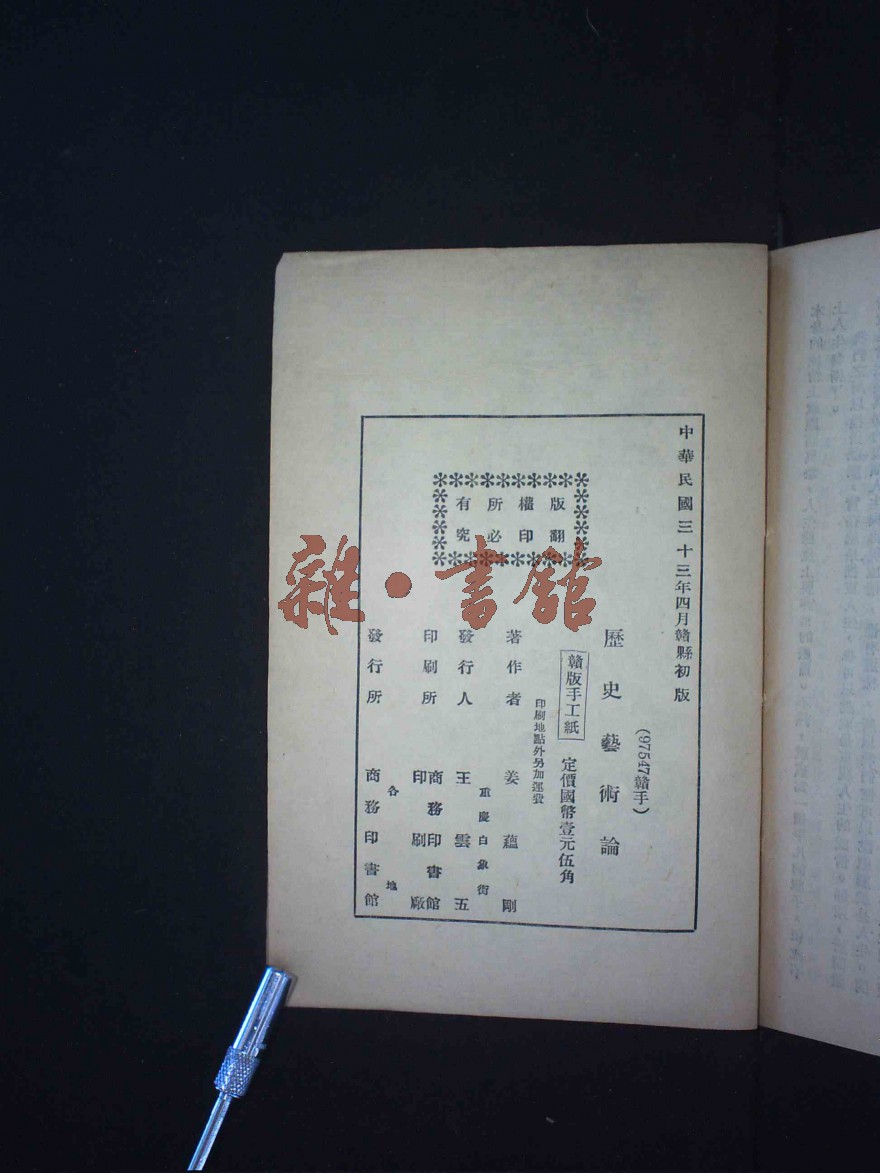 中華民國三十三年四月贛縣初版
(97547贛手)
歷史藝術論
贛版手工紙
定價國幣壹元伍角
印刷地點外另加運費
著作者
姜蘊剛
重慶白象街
發行人
王雲五
印刷所
商務印書館
印刷廠
各地
發行所
商務印書館
版權所有
翻印必究
雜·書館